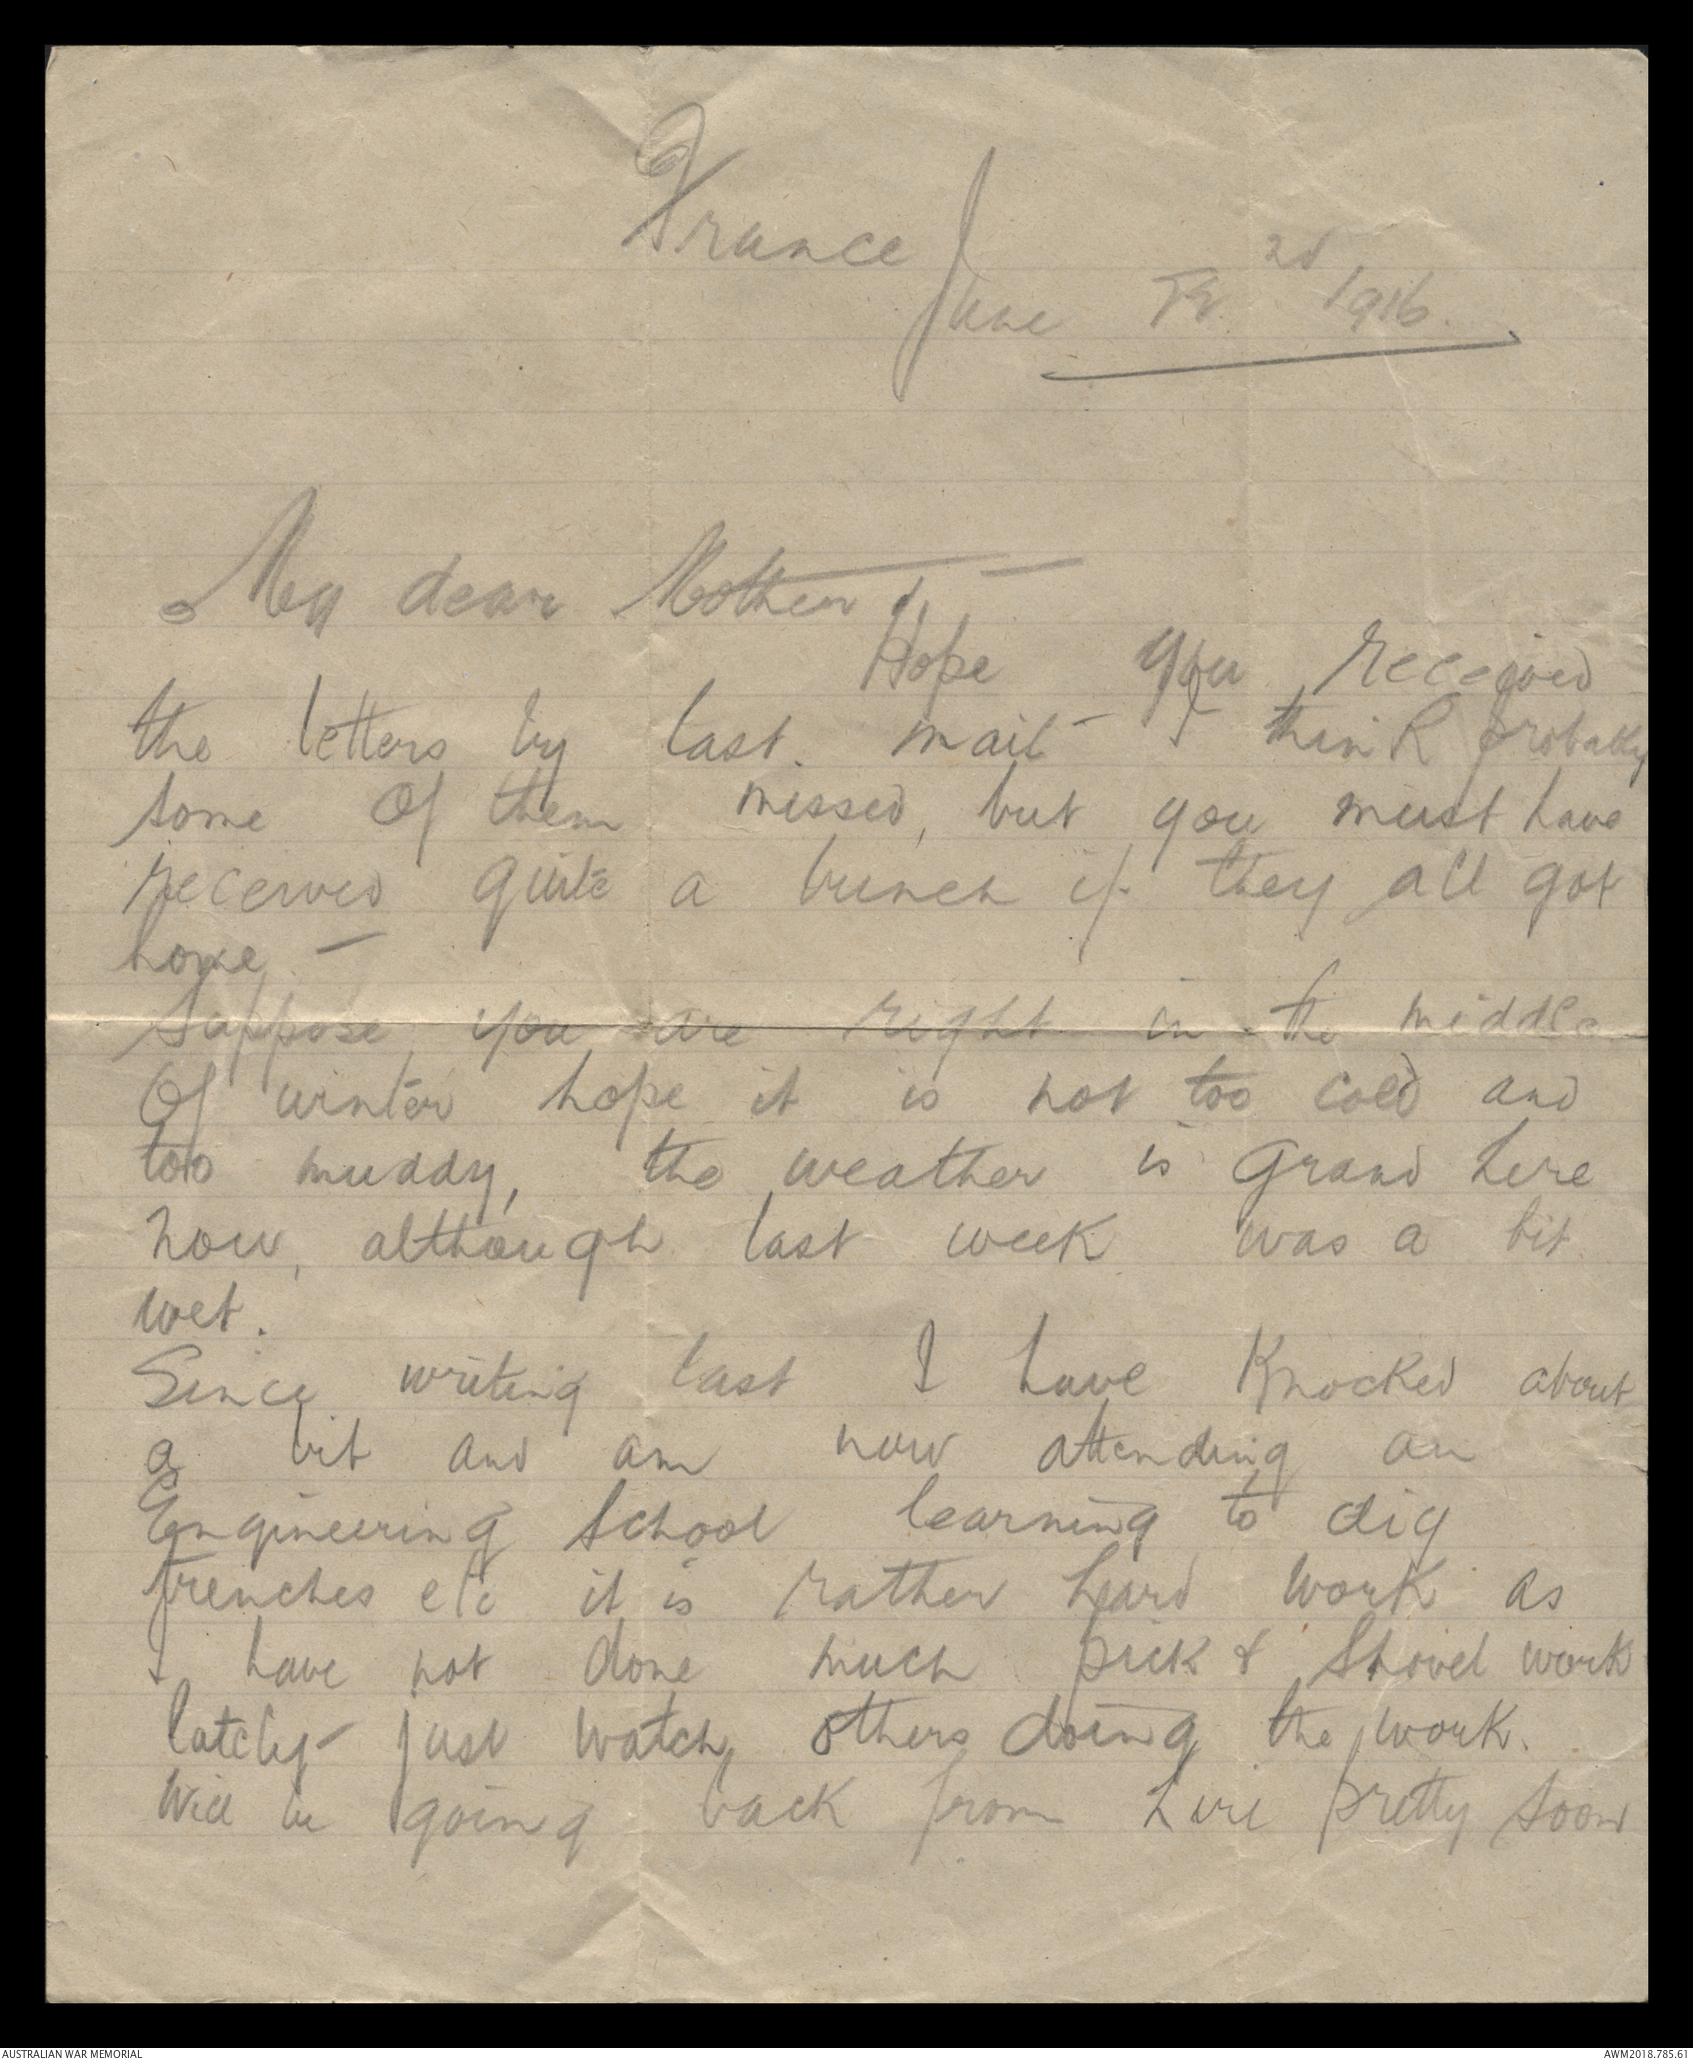 France
June 1916.
My dear Mother,
Hope you received
the letters by last. mail – I think probably
some of them missed, but you must have
received quite a bunch if they all got
home –
Suppose you are right in the middle
Of winter hope it is not too cold and
too muddy, the weather is grand here
now, although last week was a bit
wet.
Since writing last I have Knocked about
a bit and am now attending an
Engineering School learning to dig
trenches etc it is rather hard work as
I have not done much pick & Shovel work
lately – just watch others doing the work.
Will be going back from here pretty soon
AUSTRALIAN WAR MEMORIAL
AWM2018.785.61